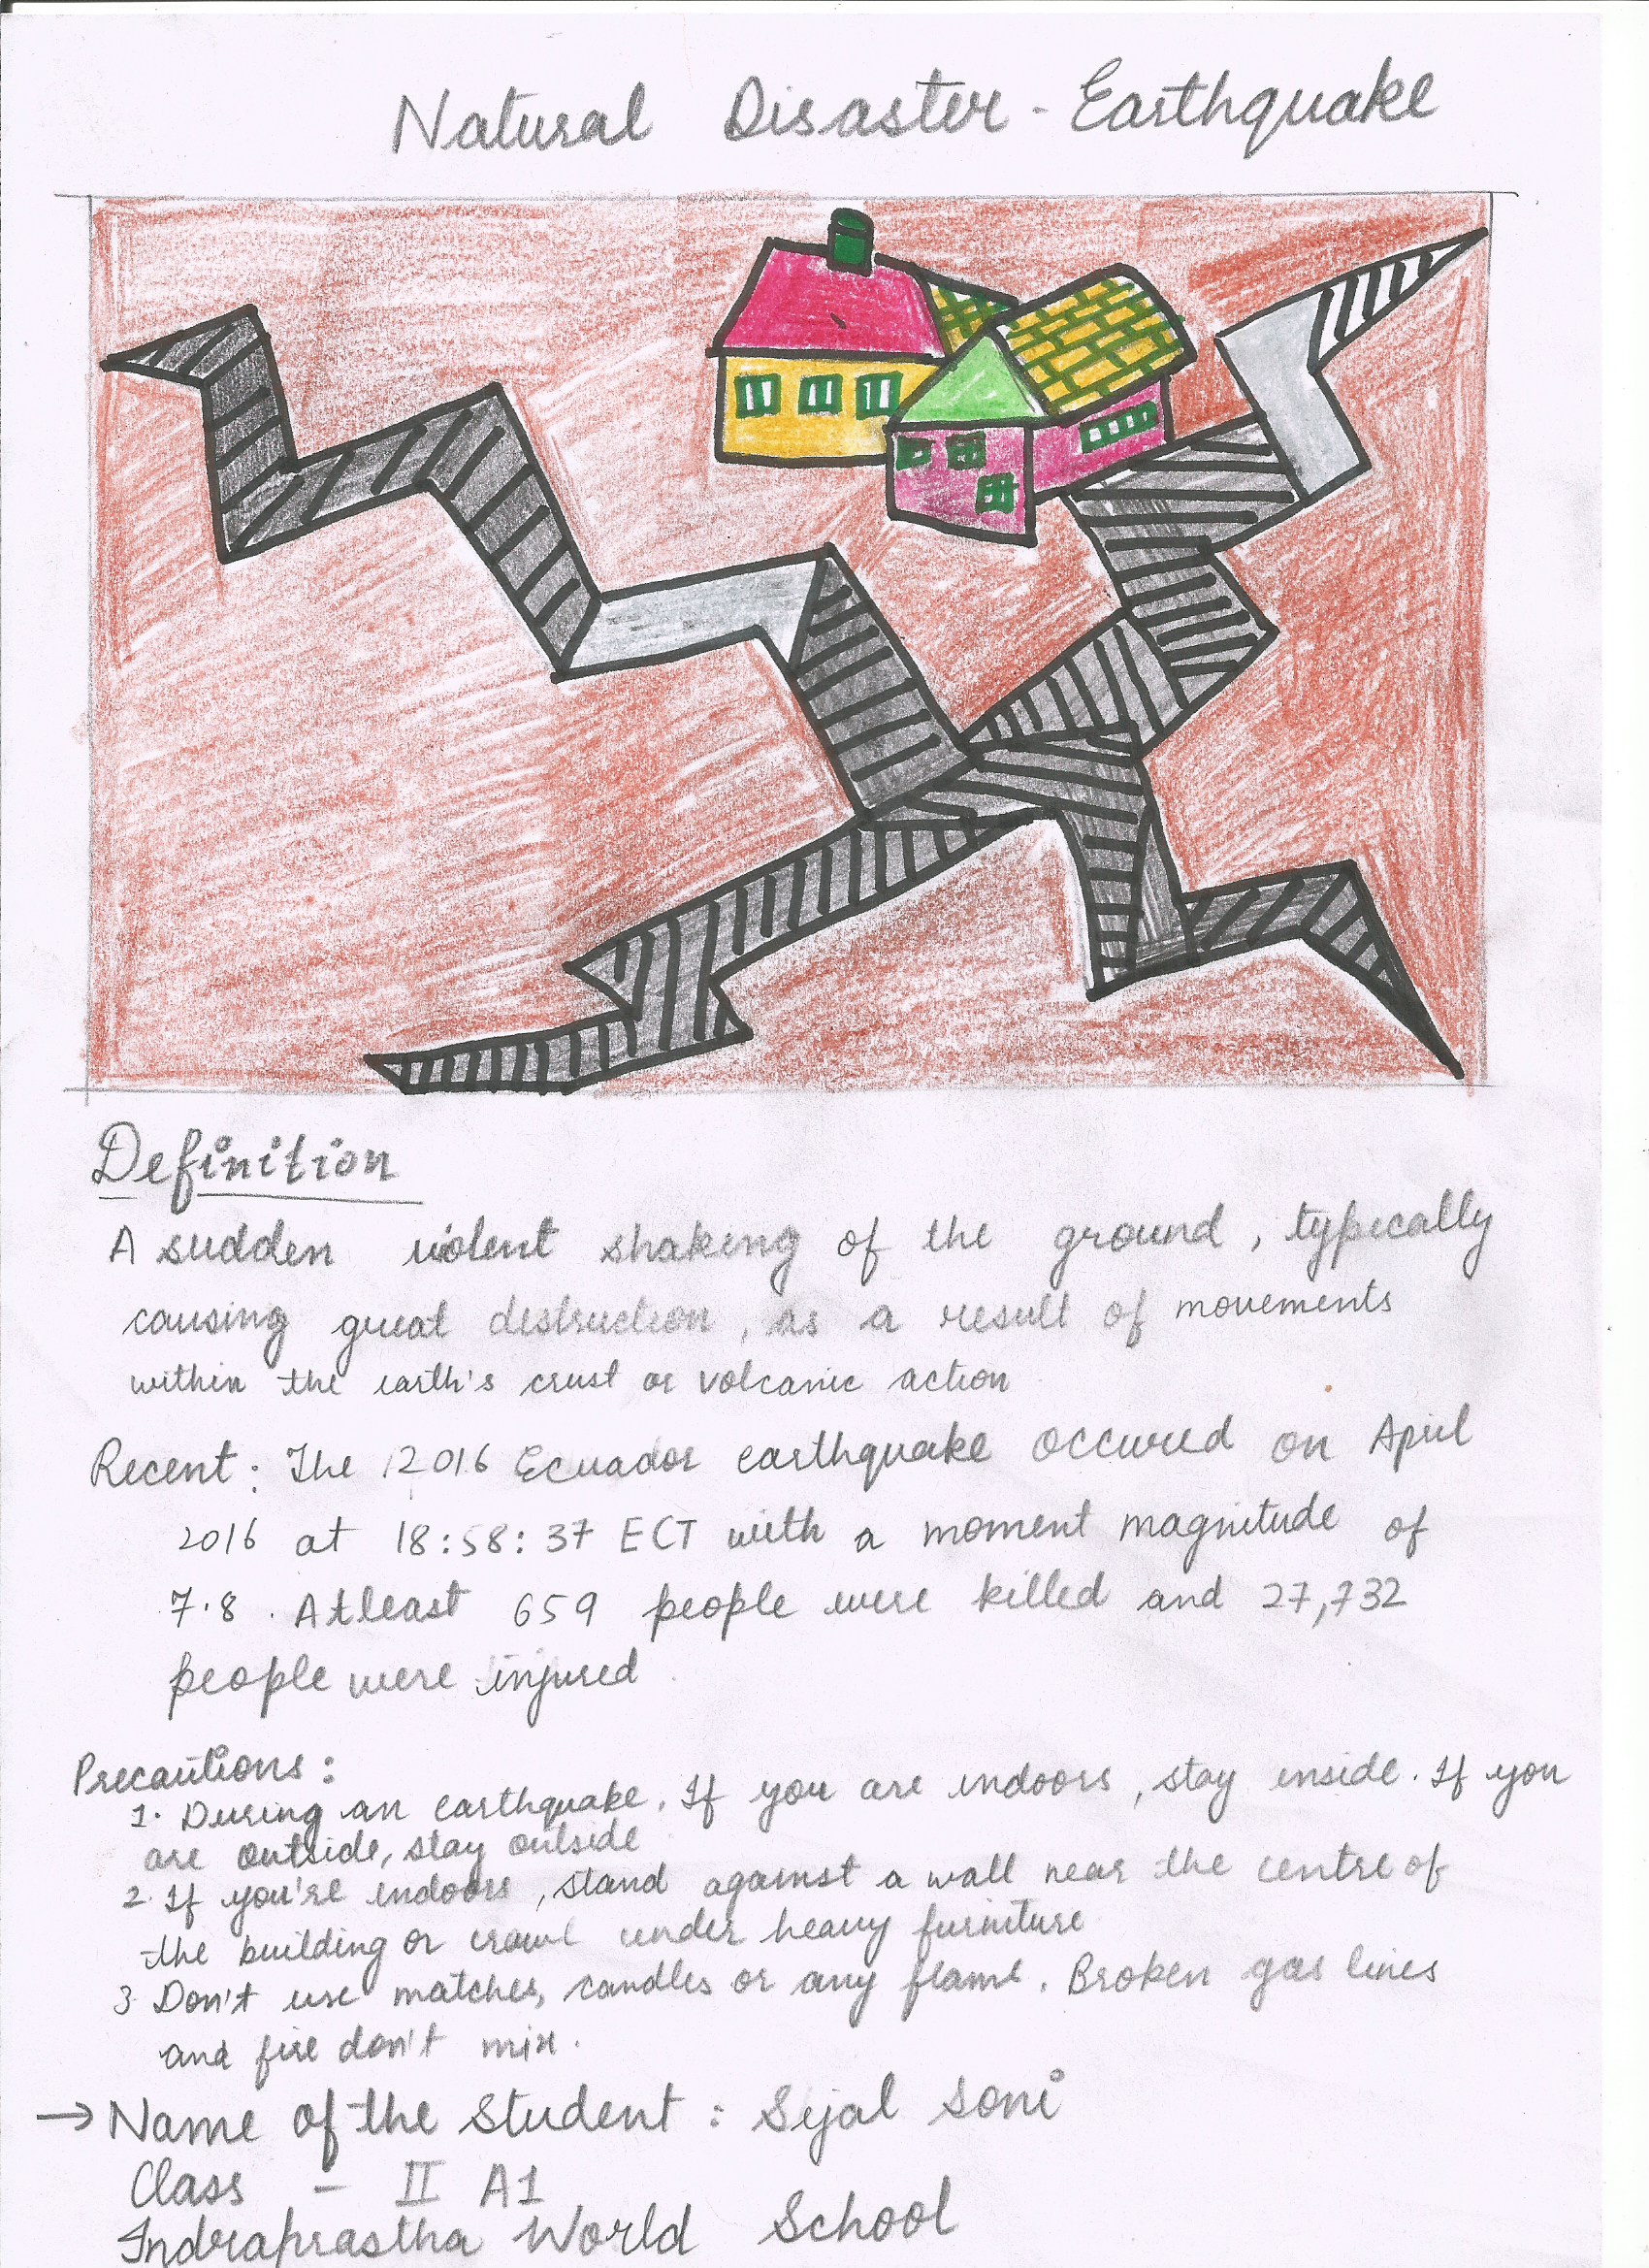 Natural Disaster - Earthquake
Definition
A sudden violent shaking of the ground, typically
causing great destruction, as a result of movements
within the earth's crust or volcanic action
Recent : The 2016 Ecuador earthquake occured on April
2016 at 18:58:37 ECT with a moment magnitude of
7.8. Atleast 659 people were killed and 27,732
people were injured.
Precautions :
1. During an earthquake. If you are indoors, stay inside. If you
are outside, stay outside
2. If you're indoors, stand against a wall near the centre of
the building or crawl under heavy furniture
3. Don't use matches, candles or any flame. Broken gas lines
and fire don't mix.
→ Name of the Student : Sijal Soni
Class - II A1
Indraprastha World School